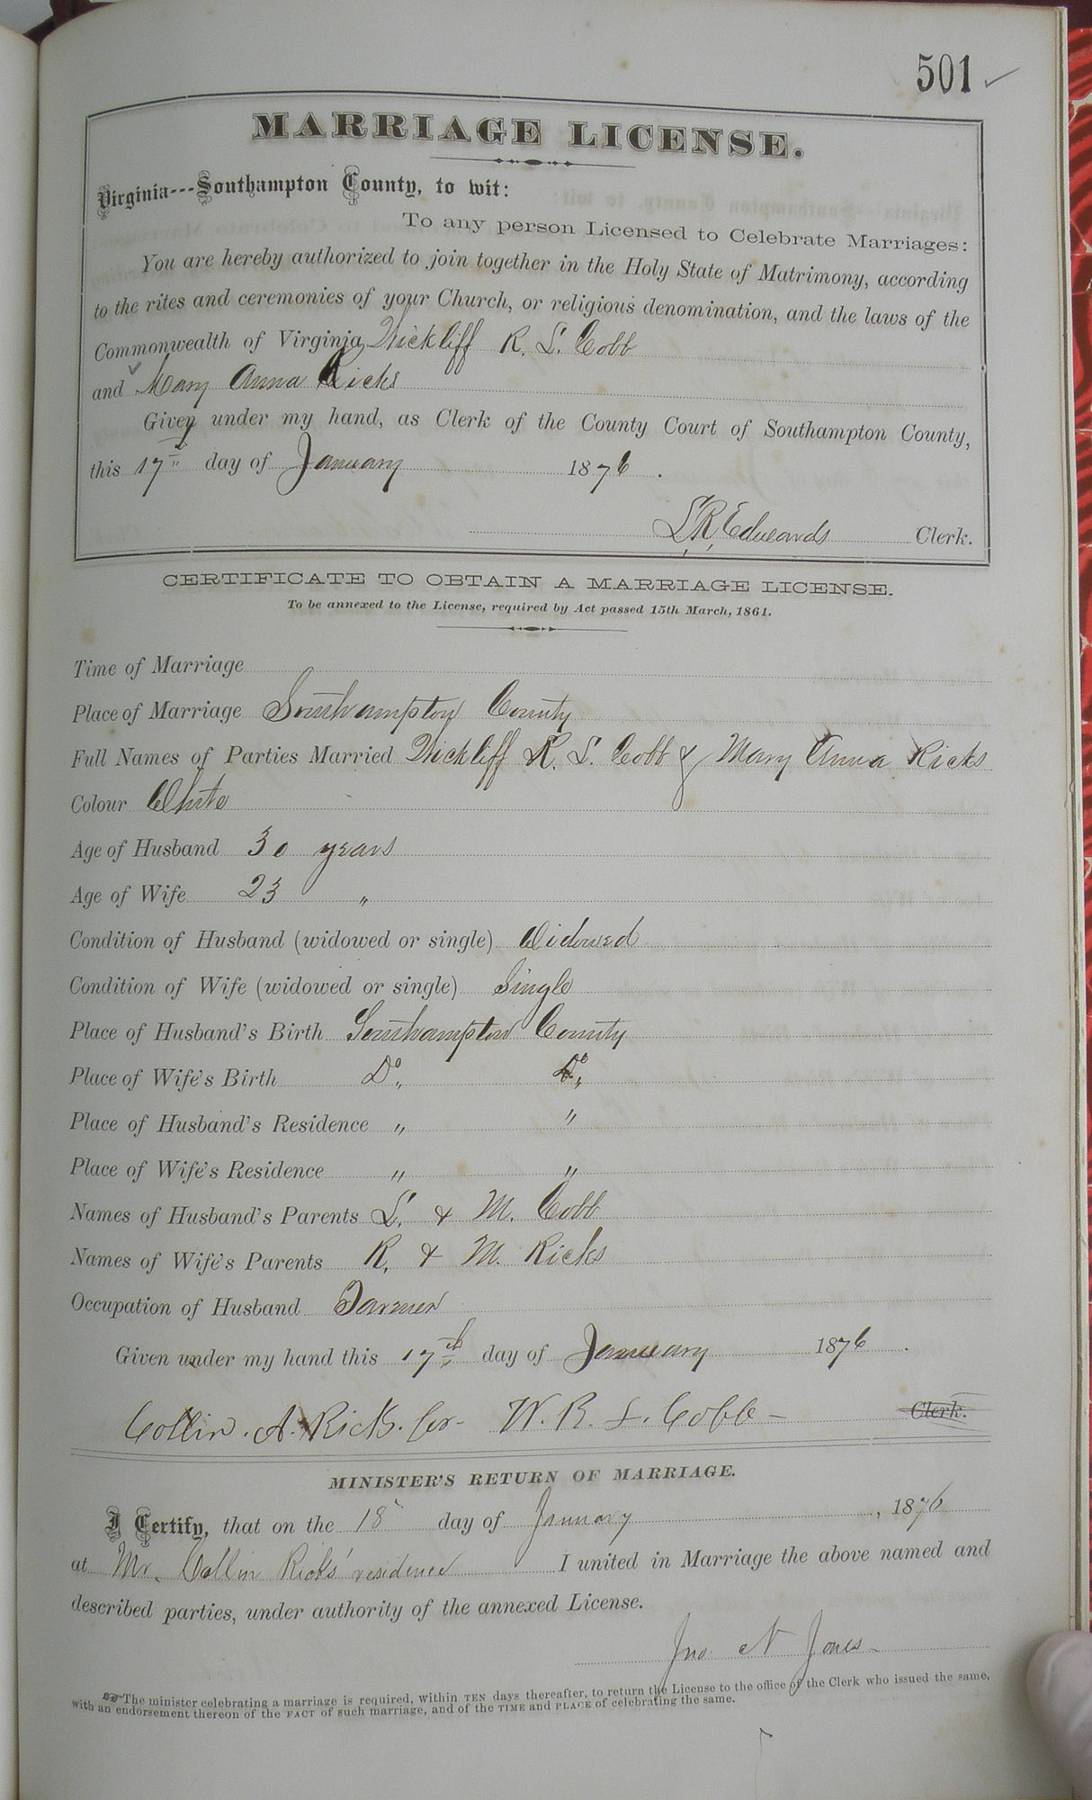 501 ✓
MARRIAGE LICENSE.
Virginia---Southampton County, to wit:
To any person Licensed to Celebrate Marriages:
You are hereby authorized to join together in the Holy State of Matrimony, according
to the rites and ceremonies of your Church, or religious denomination, and the laws of the
Commonwealth of Virginia, Wickliff R. S. Cobb
and Mary Anna Ricks
Given under my hand, as Clerk of the County Court of Southampton County,
this 17th day of January 1876.
L. R. Edwards Clerk.
CERTIFICATE TO OBTAIN A MARRIAGE LICENSE.
To be annexed to the License, required by Act passed 15th March, 1861.
Time of Marriage
Place of Marriage Southampton County
Full Names of Parties Married Wickliff R. S. Cobb & Mary Anna Ricks
Colour White
Age of Husband 30 years
Age of Wife 23 "
Condition of Husband (widowed or single) Widowed
Condition of Wife (widowed or single) Single
Place of Husband's Birth Southampton County
Place of Wife's Birth Do. Do.
Place of Husband's Residence " "
Place of Wife's Residence " "
Names of Husband's Parents L. & M. Cobb
Names of Wife's Parents R. & M. Ricks
Occupation of Husband Farmer
Given under my hand this 17th day of January 1876.
Collin. A. Ricks. for W. R. S. Cobb - Clerk.
MINISTER'S RETURN OF MARRIAGE.
I Certify, that on the 18 day of January, 1876
at Mr. Collin Ricks' residence I united in Marriage the above named and
described parties, under authority of the annexed License.
Jno N Jones
The minister celebrating a marriage is required, within TEN days thereafter, to return the License to the office of the Clerk who issued the same,
with an endorsement thereon of the FACT of such marriage, and of the TIME and PLACE of celebrating the same.